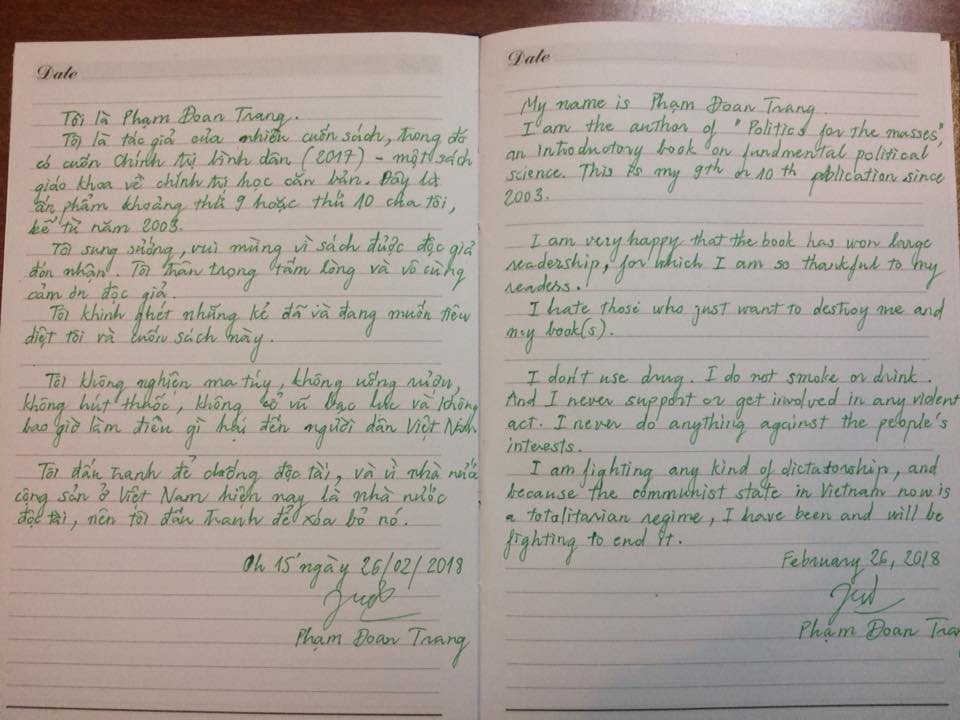 Date
Tôi là Phạm Đoan Trang.
Tôi là tác giả của nhiều cuốn sách, trong đó
có cuốn Chính trị bình dân (2017) - một sách
giáo khoa về chính trị học căn bản. Đây là
ấn phẩm khoảng thứ 9 hoặc thứ 10 của tôi,
kể từ năm 2003.
Tôi sung sướng, vui mừng vì sách được độc giả
đón nhận. Tôi trân trọng tấm lòng và vô cùng
cảm ơn độc giả.
Tôi khinh ghét những kẻ đã và đang muốn tiêu
diệt tôi và cuốn sách này.
Tôi không nghiện ma túy, không uống rượu,
không hút thuốc, không cổ vũ bạo lực và không
bao giờ làm điều gì hại đến người dân Việt Nam
Tôi đấu tranh để chống độc tài, và vì nhà nước
cộng sản ở Việt Nam hiện nay là nhà nước
độc tài, nên tôi đấu tranh để xóa bỏ nó.
0h 15' ngày 26/02/2018
Phạm Đoan Trang
Date
My name is Phạm Đoan Trang.
I am the author of "Politics for the masses",
an introductory book on fundmental political
science. This is my 9th or 10th publication since
2003.
I am very happy that the book has won large
readership, for which I am so thankful to my
readers.
I hate those who just want to destroy me and
my book(s).
I don't use drug. I do not smoke or drink.
And I never support or get involved in any violent
act. I never do anything against the people's
interests.
I am fighting any kind of dictatorship, and
because the communist state in Vietnam now is
a totalitarian regime, I have been and will be
fighting to end it.
February 26, 2018
Phạm Đoan Tra